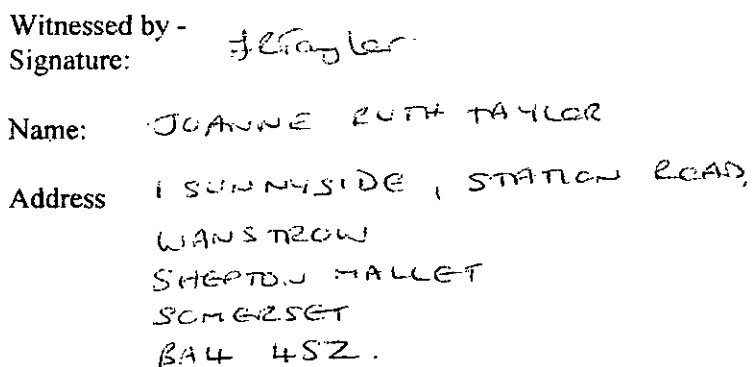 Witnessed by -
Signature: JRTaylor
Name: JOANNE RUTH TAYLOR
Address 1 SUNNYSIDE, STATION ROAD,
WANSTROW
SHEPTON MALLET
SOMERSET
BA4 4SZ.